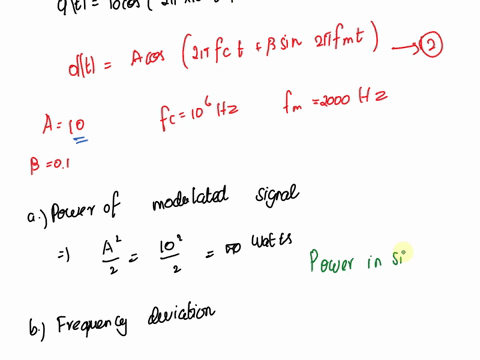 φ(t) = A cos (2πfct + β sin 2πfmt) → ②
A = 10 fc = 10⁶ Hz fm = 2000 Hz
β = 0.1
a.) Power of modulated signal
=) A²/2 = 10²/2 = watts
Power in si
b.) Frequency deviation